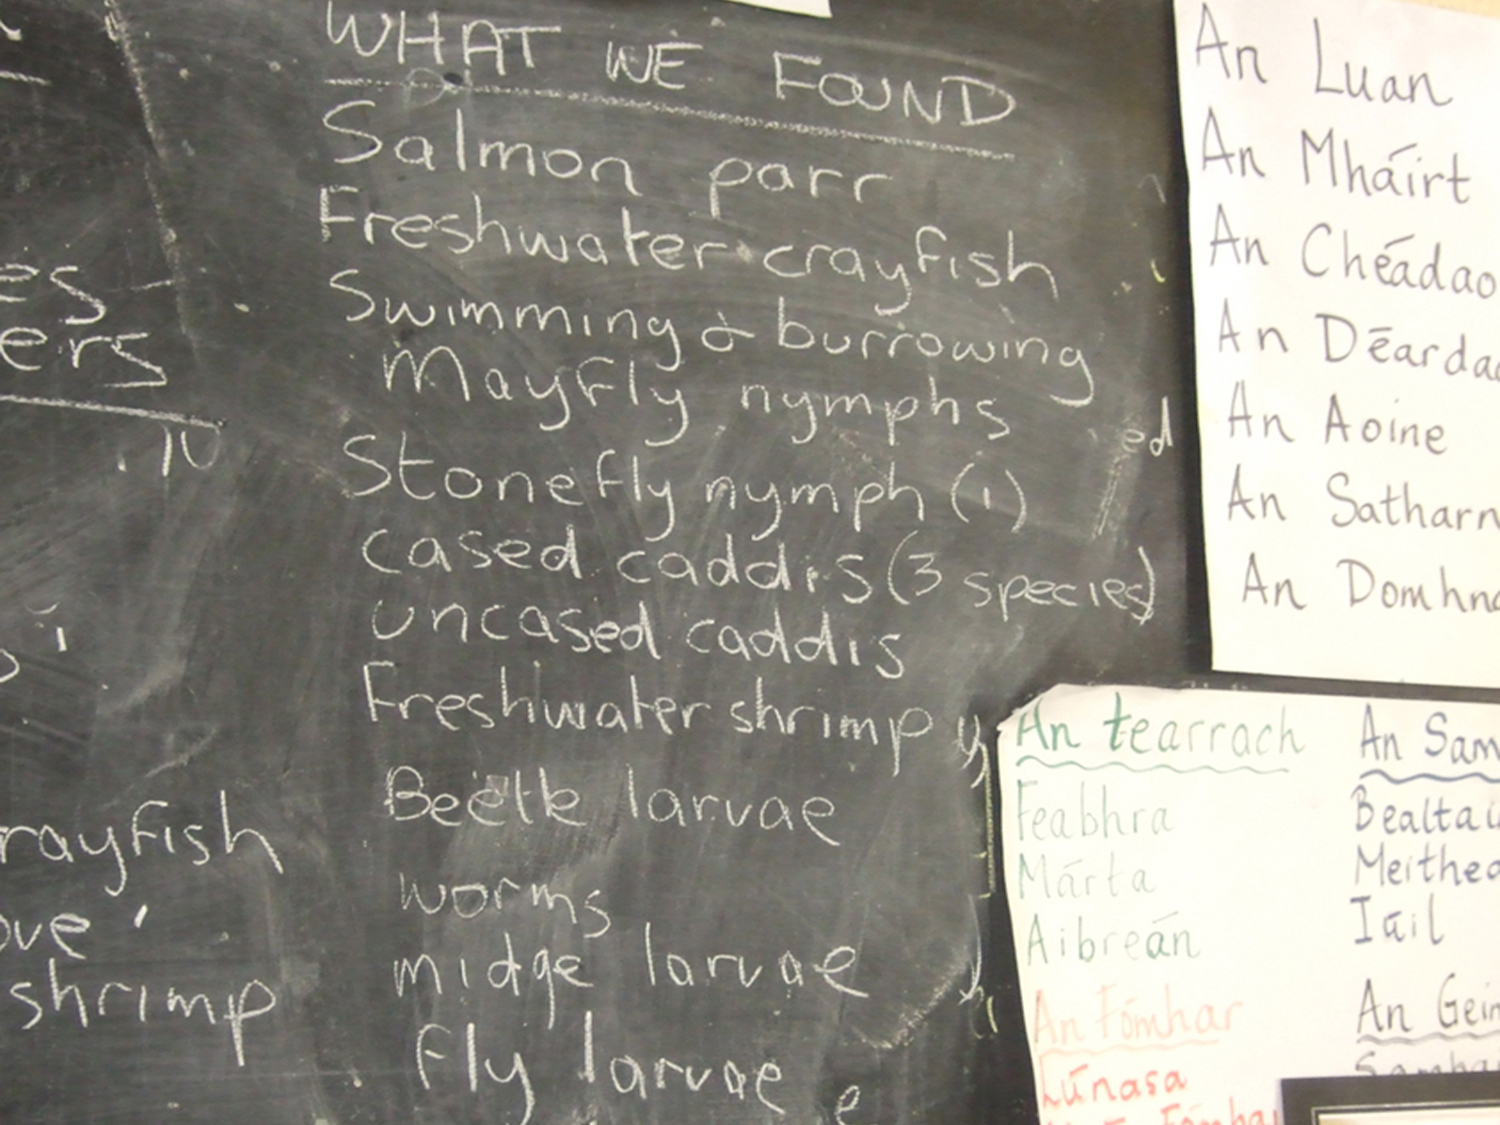 WHAT WE FOUND
Salmon parr
Freshwater crayfish
Swimming & burrowing
Mayfly nymphs
Stonefly nymph (1)
cased caddis (3 species)
uncased caddis
Freshwater shrimp
Beetle larvae
worms
midge larvae
fly larvae
es
ers
rayfish
ove
shrimp
ed
An Luan
An Mháirt
An Chéadao
An Déarda
An Aoine
An Satharn
An Domhna
An tearrach
Feabhra
Márta
Aibreán
An Fómhar
Lúnasa
An Sam
Bealtai
Meithea
Iúil
An Geim
Samha